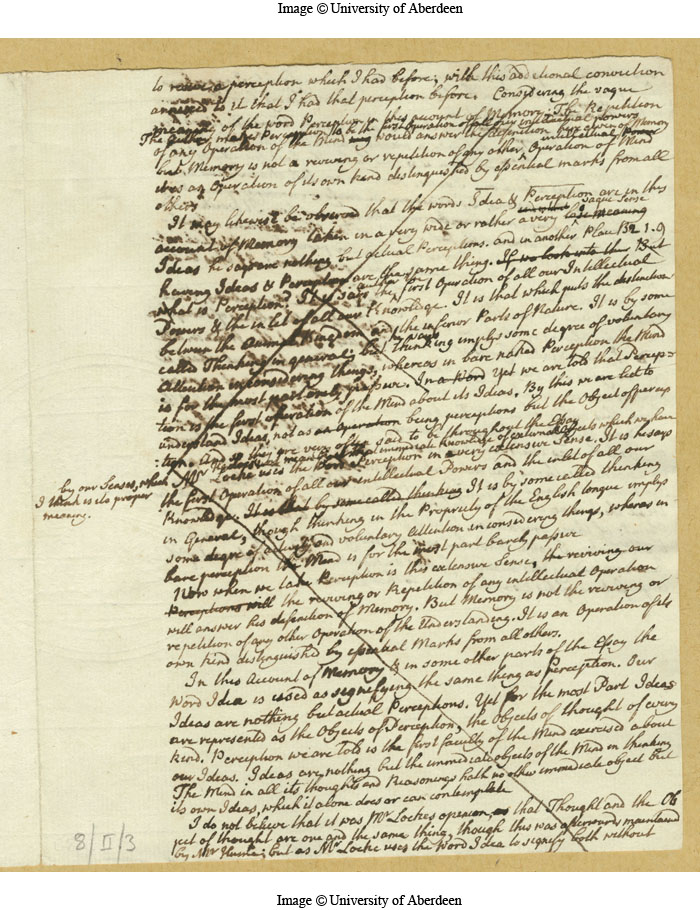 Image © University of Aberdeen
to receive a perception which I had before; with this additional conviction
annexed to it that I had that perception before. Considering the vague
meaning of the word Perception in this account of Memory. The Repetition
The Author makes Perception to be the first Operation of all our intellectual powers
of any Operation of the Mind may would answer the definition here given of Memory
but Memory is not a reviving or repetition of any other intellectual Power Operation of Mind
it is an Operation of its own kind distinguished by essential marks from all
others
It may likewise be observed that the words Idea & Perception are in this
account of Memory taken in a very wide or rather a very vague Sense meaning
Ideas he says are nothing but actual Perceptions. and in another Place B2 1. 9
having Ideas & Perception are the same thing. If we look into the But
what is Perception? It is says the author the first Operation of all our Intellectual
Powers & the inlet of all our Knowledge. It is that which puts the distinction
between the Animal Kingdom and the inferior Parts of Nature. It is by some
called Thinking in general; but thinking implys some degree of voluntary
Attention in considering things, whereas in bare naked Perception the Mind
is for the most part only passive. In a Word Yet we are told that Percep-
tion is the first operation of the Mind about its Ideas. By this we are led to
understand Ideas, not as an operation being perceptions but the Object of percep
tion. And so they are very often said to be throughout the Essay
Mr Locke uses the Word Perception in a very extensive Sense. It is he says
immediate knowledge of external objects which we have
by our Senses, which
I think is its proper
meaning.
the first Operation of all our intellectual Powers and the inlet of all our
Knowledge. It is that by some called thinking It is by some called thinking
in General, though thinking in the Propriety of the English tongue implys
some degree of activity and voluntary Attention in considering things, whereas in
bare perception the Mind is for the most part barely passive
Now when we take Perception in this extensive Sense, the reviving our
Perceptions will the reviving or Repetition of any intellectual Operation
will answer his definition of Memory. But Memory is not the reviving or
repetition of any other Operation of the Understanding. It is an Operation of its
own kind distinguished by essential Marks from all others.
In this Account of Memory & in some other parts of the Essay the
Word Idea is used as signifying the same thing as Perception. Our
Ideas are nothing but actual Perceptions. Yet for the most Part Ideas
are represented as the Objects of Perception, the Objects of thought of every
kind. Perception we are told is the first faculty of the Mind exercised about
our Ideas. Ideas are nothing but the immediate objects of the Mind in thinking
The Mind in all its thoughts and Reasonings hath no other immediate object but
its own Ideas, which it alone does or can contemplate
I do not believe that it was Mr Lockes opinion, that Thought and the Ob
ject of thought are one and the same thing, though this was afterwards maintained
by Mr Hume; but as Mr Locke uses the Word Idea to signify both without
8/II/3
Image © University of Aberdeen